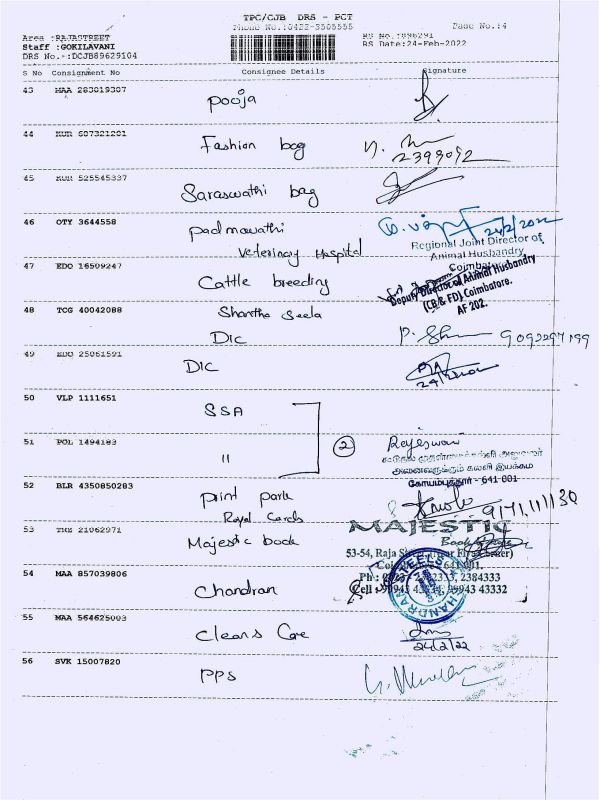 TPC/CJB DRS - PCT
Phone No.:0422-3505555
Page No.:4
Area :RAJASTREET
Staff :GOKILAVANI
DRS No.:DCJB89629104
RS No.:896291
RS Date:24-Feb-2022
S No Consignment No Consignee Details Signature
43 MAA 283819307 pooja
44 KUR 607321201 Fashion bag
2399092
45 KUR 525545337 Saraswathi bag
46 OTY 3644558 padmawathi
Veterinary Hospital
24/2/2022
Regional Joint Director of
Animal Husbandry
Coimbatore
47 EDO 16509247 Cattle breeding
Deputy Director of Animal Husbandry
(CB & FD) Coimbatore.
AF 202.
48 TCG 40042088 Shantha Seela
DIC
9092297199
49 EDO 25061591 DIC
50 VLP 1111651 SSA
51 POL 1494183 11
2
கோயம்புத்தூர் - 641 001
52 BLR 4350850283 print park
Royal Cards
53 21062971 Majestic book
MAJESTIC
53-54, Raja
641 001.
Ph : 2384333
Cell : 43332
54 MAA 857039806 Chandran
55 MAA 564625003 Cleans Care
24/2/22
56 SVK 15007820 PPS